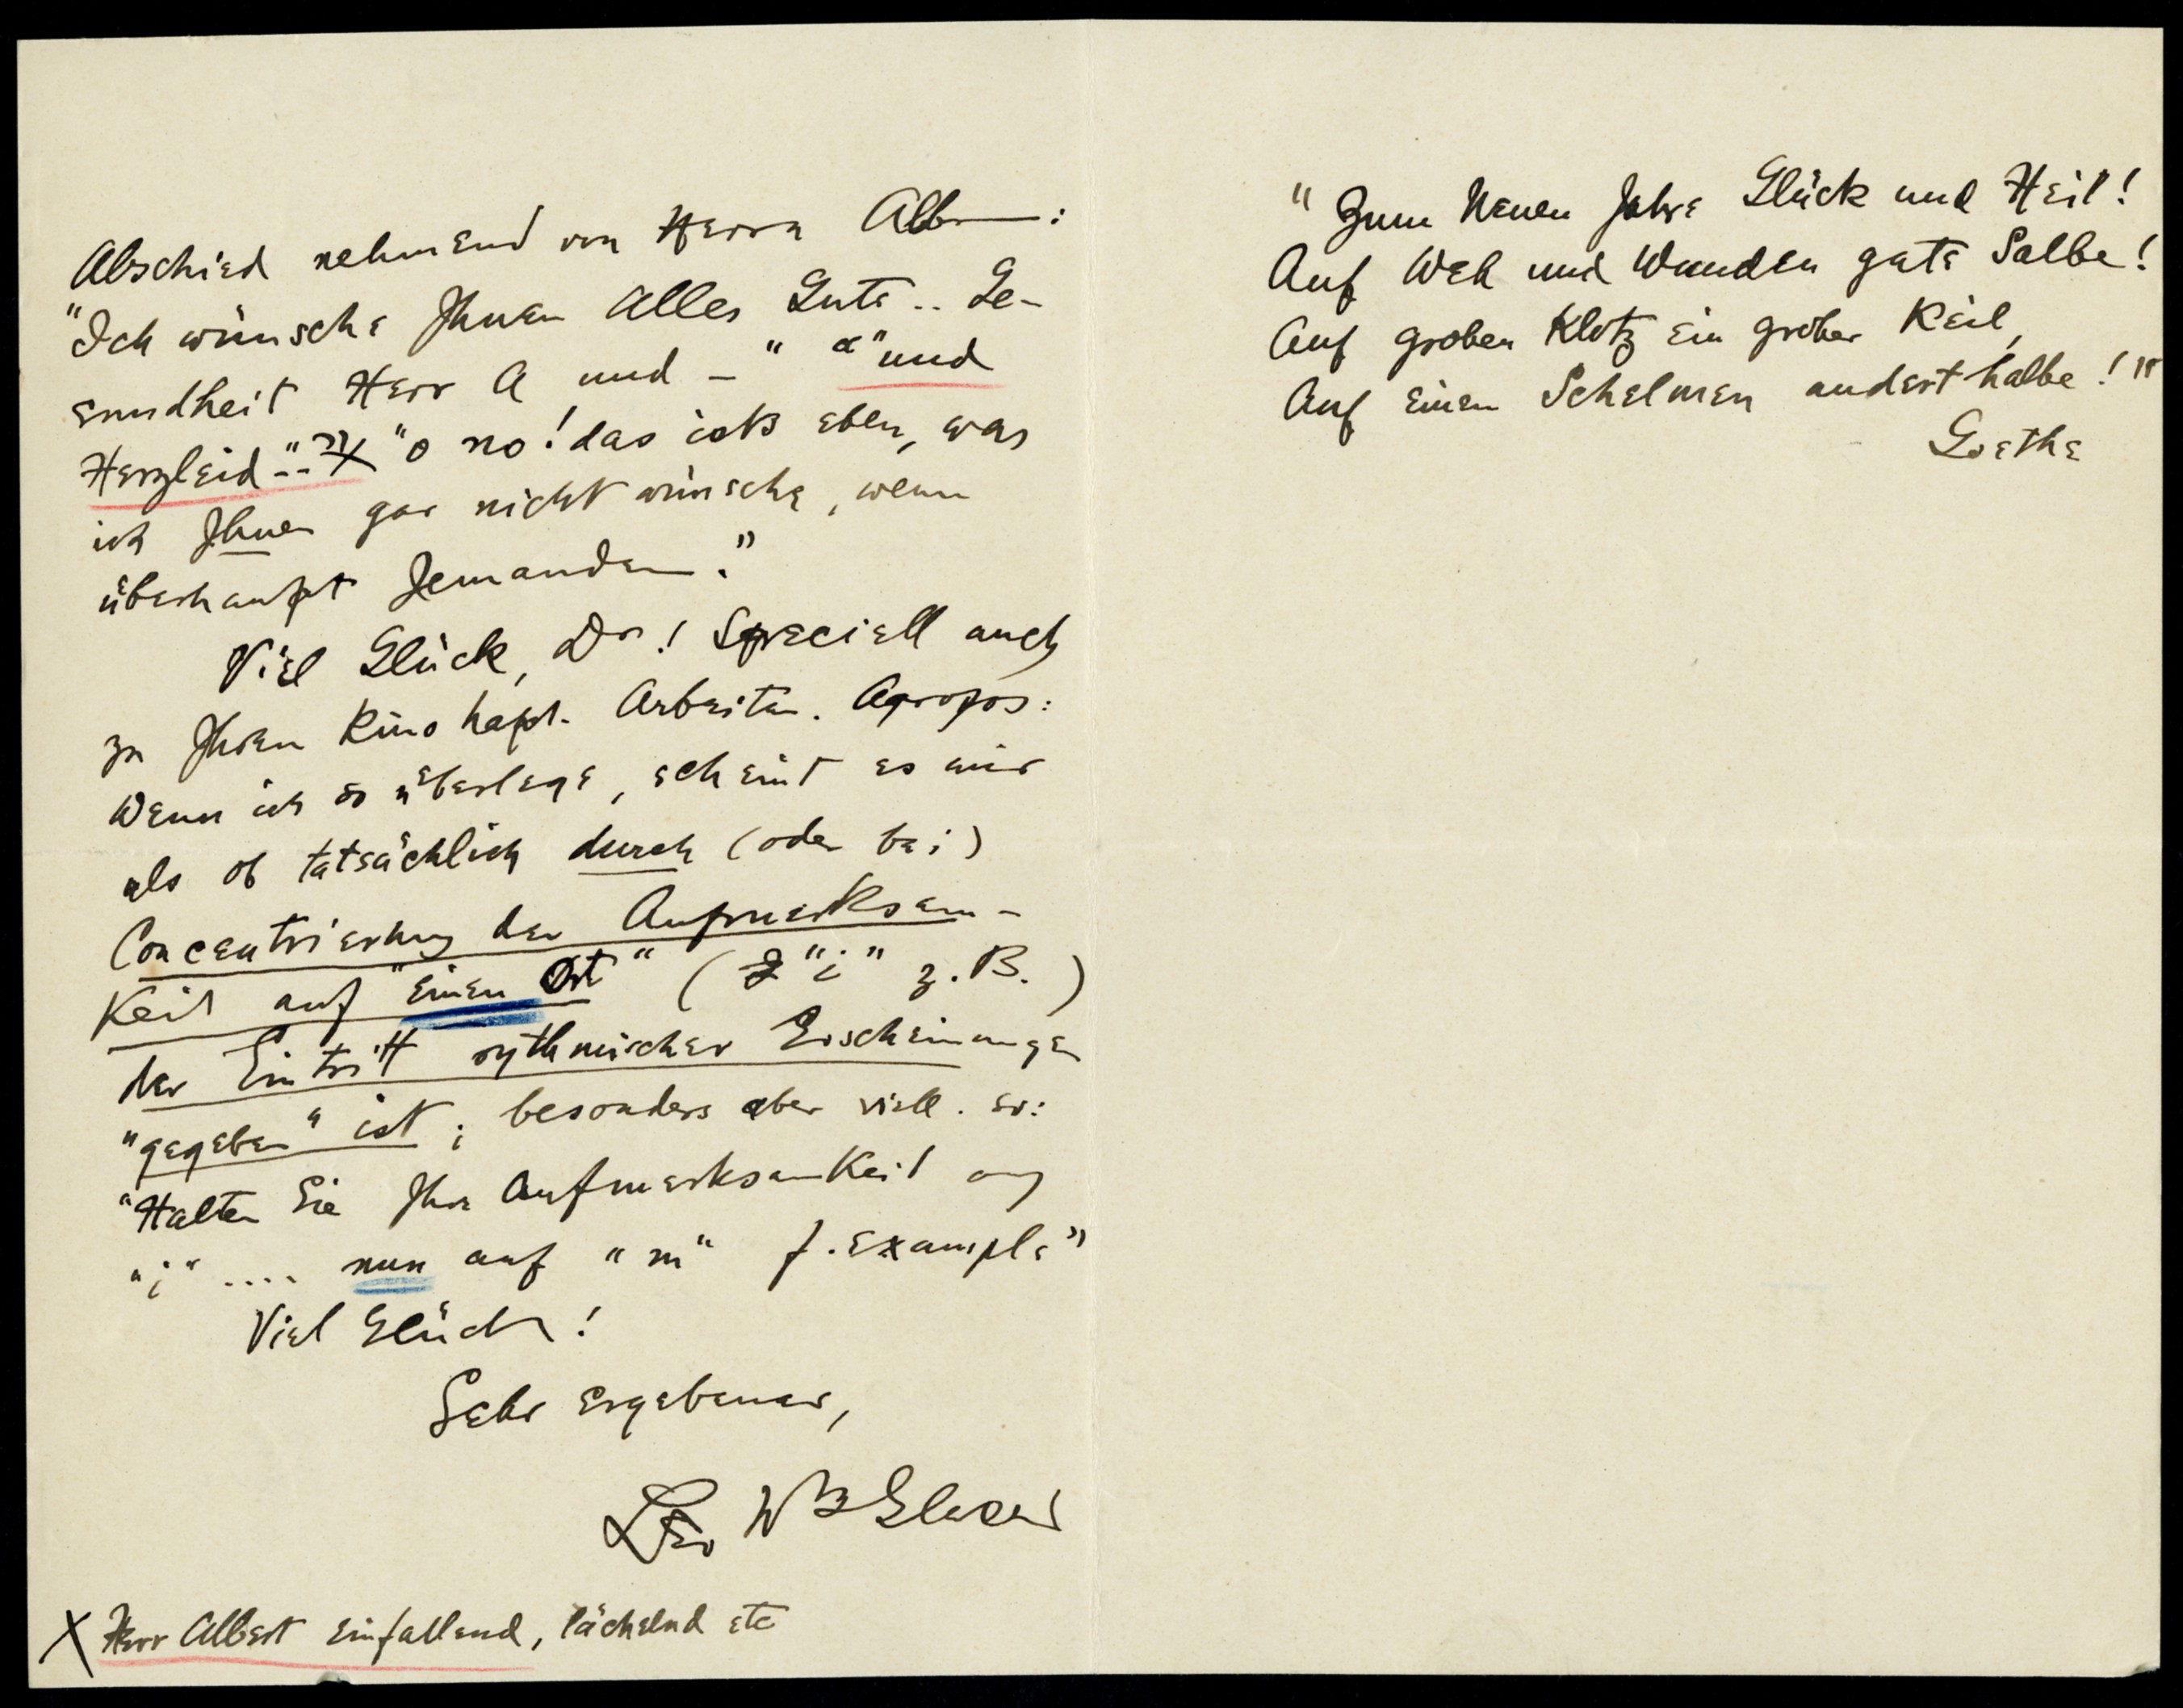 Abschied nehmend von Herrn Alb—:
"Ich wünsche Ihnen Alles Gute.. Ge-
sundheit Herr A und – " α" und
Herzleid".." X "o no! das ists eben, was
ich Ihnen gar nicht wünsche, wenn
überhaupt Jemanden."
Viel Glück, Dr! Speciell auch
zu Ihren Kinohapt. Arbeiten. Apropos:
Wenn ich so überlege, scheint es mir
als ob tatsächlich durch (oder bei)
Concentrierung der Aufmerksam-
keit auf "einen Ort" ( "i" z.B. )
der Eintritt rythmischer Erscheinungen
"gegeben" ist; besonders aber viell. er:
"Halten Sie Ihre Aufmerksamkeit auf
"i" .... nun auf "m" f. example"
Viel Glück!
Sehr ergebener,
Leo WBGlaser
X Herr Albert einfallend, lächelnd etc
"Zum Neuen Jahre Glück und Heil!
Auf Weh und Wunden gute Salbe!
Auf groben Klotz ein grober Keil,
Auf einen Schelmen anderthalbe!"
Goethe